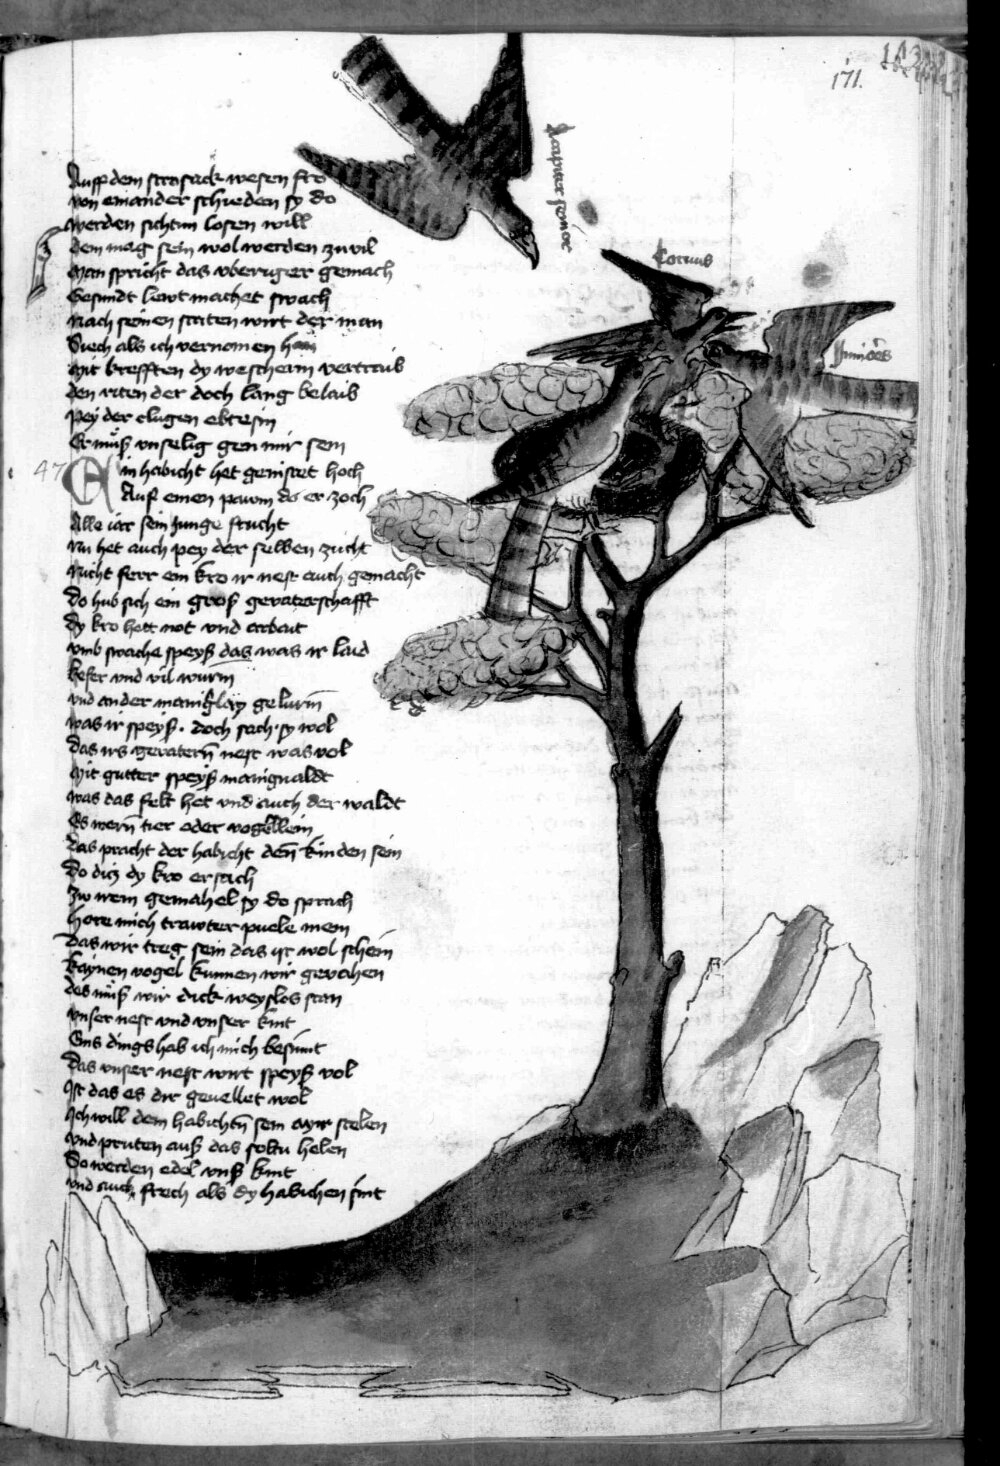 171.
Auff dem strosack wesen fro
von einander schieden sy do
werden sichtun losen will
dem mag sein wol werden zu vil
Man spricht das vberiger gemach
Gesundt lewt machet swach
Nach seinen staten wirt der man
Siech als ich vernomen han
Mit krefften dy wescherin vertraib
den riten der doch lang belaib
Pey der clugen ebtesin
Er muß vnselig gen mir sein
47
Ein habicht het genistet hoch
Auf einen pawm do er zoch
Alle iar sein Junge frucht
Nu het auch pey der selben zucht
Nicht ferr ein kro ir nest auch gemacht
Do hub sich ein groß geuaterschafft
Dy kro hett not vnd arbait
vmb swache speyß das was ir laid
kefer vnd vil wurm
vnd ander manigslay gelurm̄
was ir speyß. doch sach sy wol
das irs geuatern̄ nest was vol
Mit gutter speyß manigualdt
was das felt het vnd auch der waldt
Es wern̄ tier oder vogellein
Das pracht der habicht den̄ kinden sein
Do ditz dy kro ersach
Zw irem gemahel sy do sprach
hore mich trawter puele mein
Das wir treg sein das ist wol schein
kaynen vogel kunnen wir gevahen
des muß wir dick weyslos stan
vnser nest vnd vnser kint
Eins dings hab ich mich besunt
Das vnser nest wirt speyß vol
Ist das es dir geuellet wol
Ich will dem habichtn̄ sein ayr stelen
vnd pruten auß das soltu helen
So werden edel vnß kint
vnd auch frech als dy habichen sint
Coruus